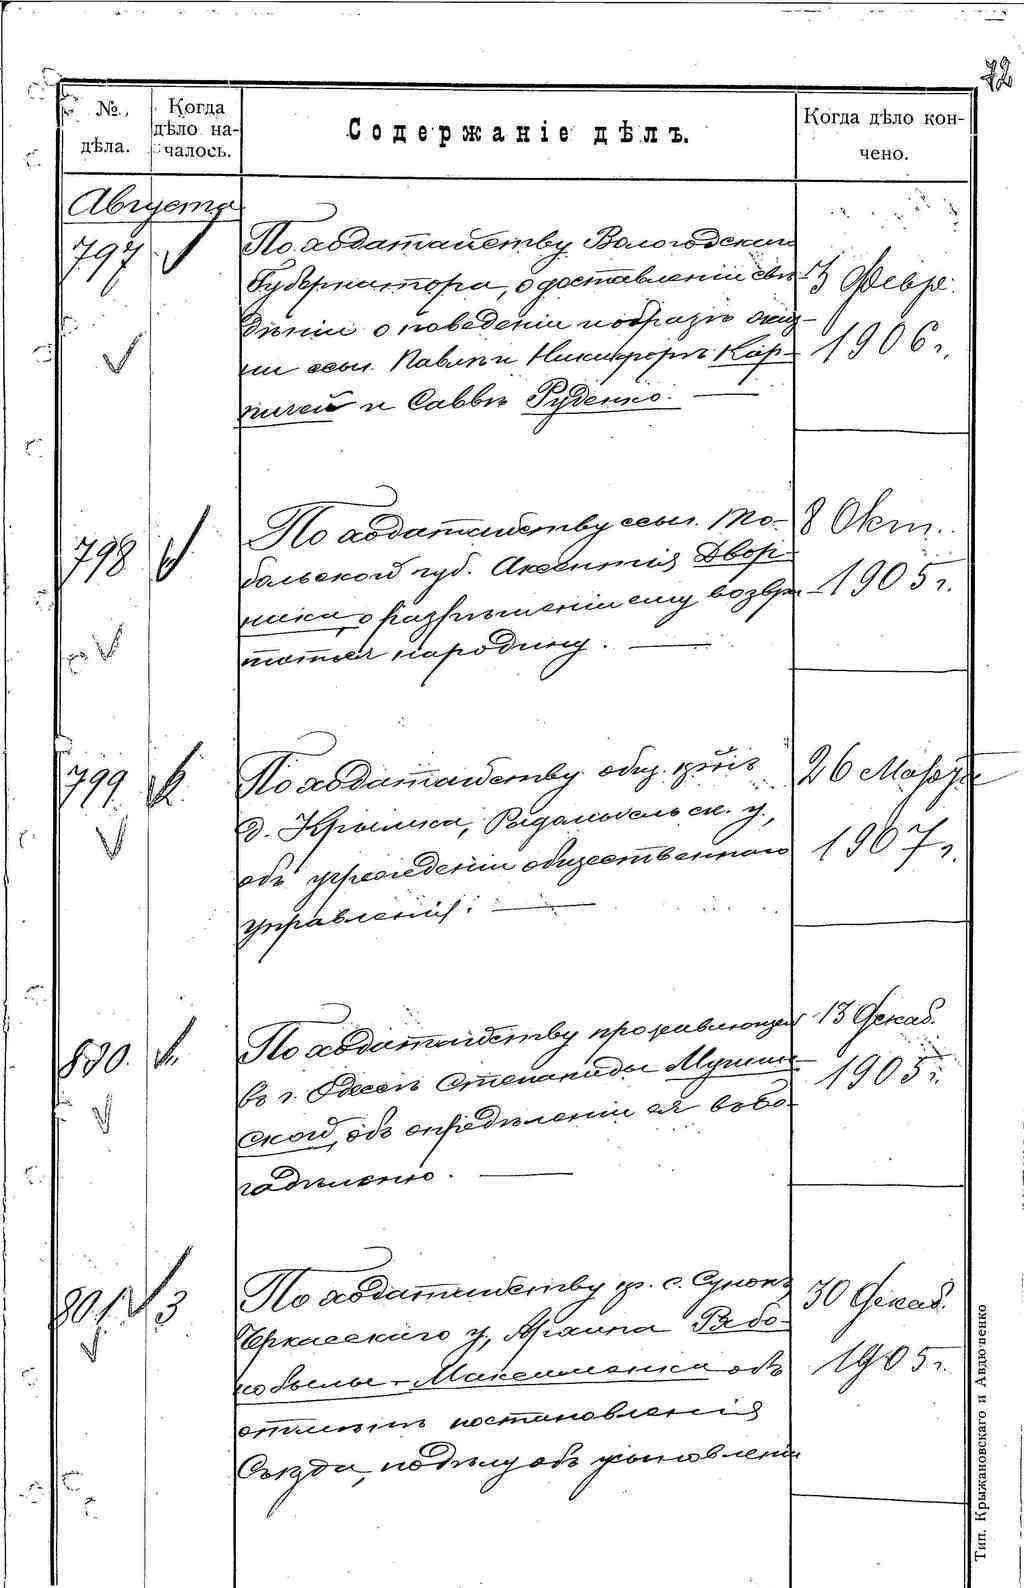 72
№ дѣла.
Когда дѣло началось.
Содержаніе дѣлъ.
Когда дѣло кончено.
Августа
797
По ходатайству Вологодскаго
Губернатора, о доставленіи свѣ-
дѣній о поведеніи и образѣ жиз-
ни ссыл. Павлѣ и Никифорѣ Кар-
пичей и Саввѣ Руденко.
3 Февр.
1906 г.
798
По ходатайству ссыл. То-
больской губ. Аксентія Двор-
ника, о разрѣшеніи ему возвра-
титься на родину.
8 Окт.
1905 г.
799
По ходатайству общ.
д. Крымка,
объ учрежденіи общественнаго
управленія.
26 Марта
1907 г.
800.
По ходатайству проживающей
въ г. Одессѣ Степаниды
ской, объ опредѣленіи ея въ бо-
гадѣльню.
13 Декаб.
1905 г.
801
3
По ходатайству кр. с. Сунокъ
Черкасскаго у, Архипа Рябо-
кобылы-Максименка объ
отмѣнѣ постановленія
Съѣзда, по дѣлу объ усыновленіи
30 Декаб.
1905 г.
Тип. Крыжановскаго и Авдюченко